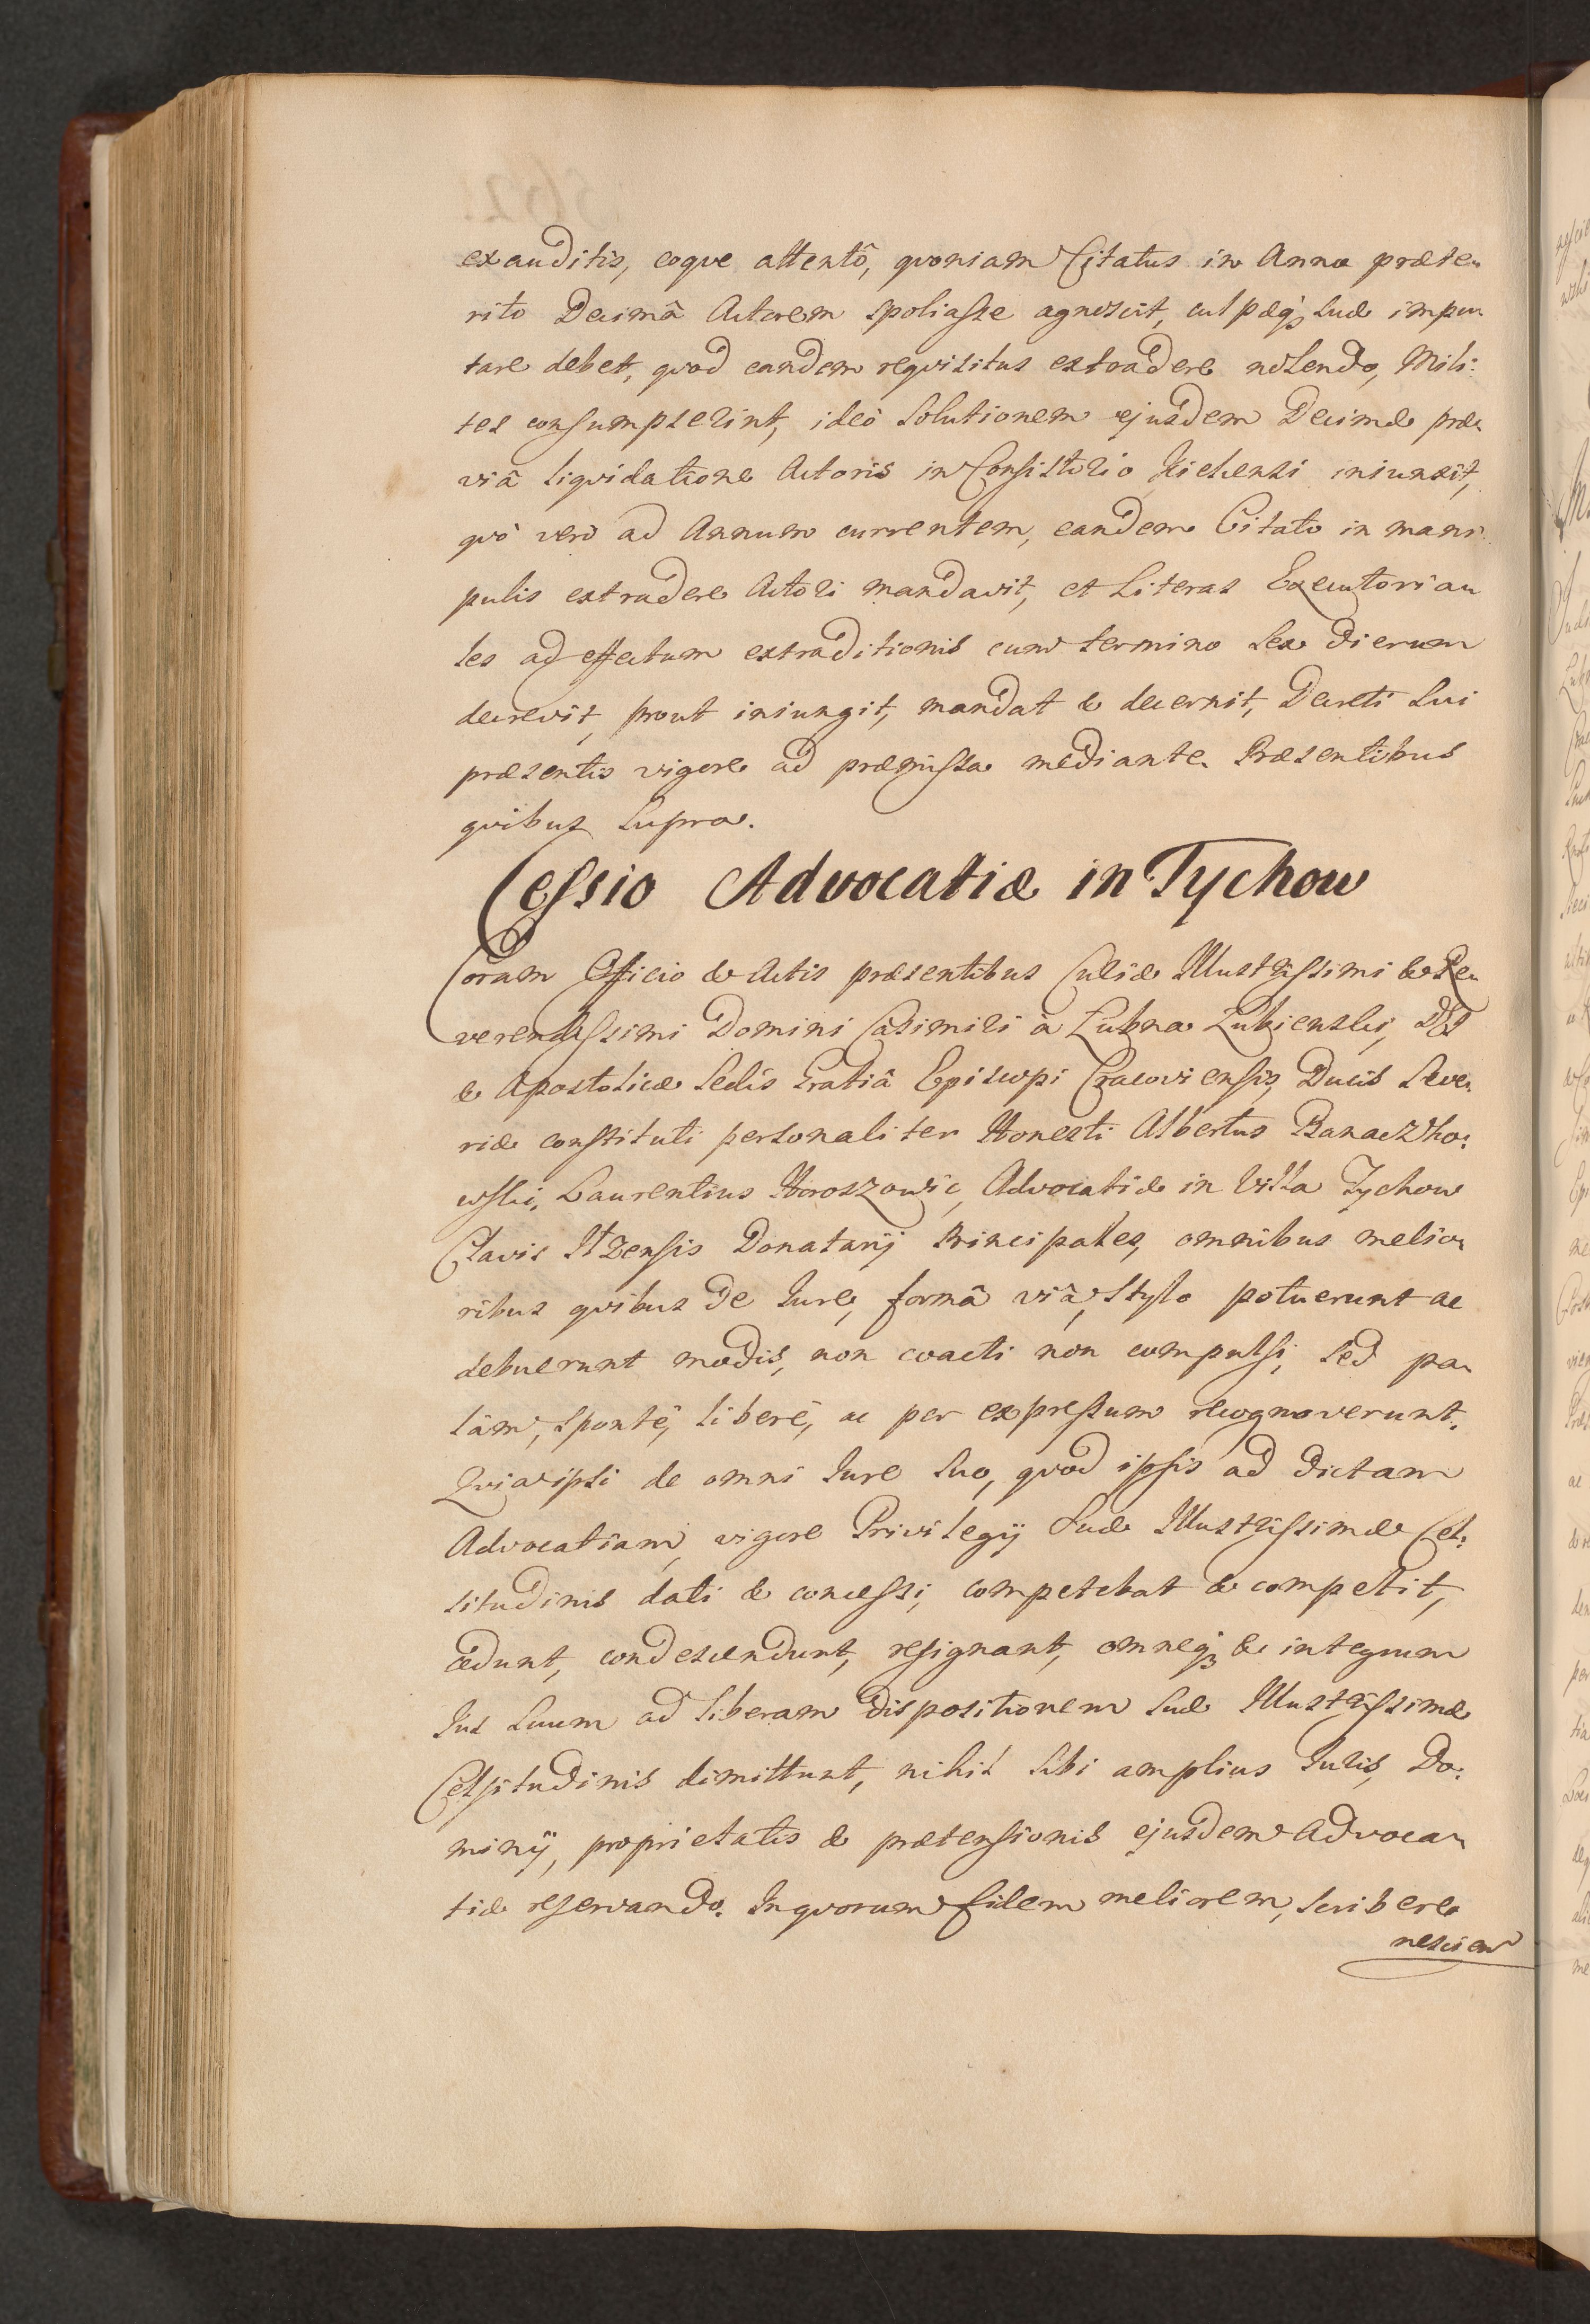 exauditis, eoque attentô, quoniam Citatus in Anno præte-
rito Decimâ Actorem spoliasse agnoscit, culpæq; suæ impu-
tare debet, quod eandem requisitus extradere nolendo, Mili-
tes consumpserint, ideò solutionem ejusdem Decimæ præ-
viâ liquidatione Actoris in Consistorio Kielcensi iniunxit,
quò verò ad Annum currentem, eandem Citato in mani-
pulis extradere Actori mandavit, et Literas Executoria-
les ad effectum extraditionis cum termino sex dierum
decrevit, prout iniungit, mandat & decernit, Decreti sui
præsentis vigore ad præmissa mediante. Præsentibus
quibus supra.
Cessio Advocatiæ in Tychow
Coram Officio & Actis præsentibus Curiæ Illustrissimi & Re-
verendissimi Domini Casimiri à Łubna Łubienski, DEI
& Apostolicæ Sedis Gratiâ Episcopi Cracoviensis, Ducis Seve-
riæ constituti personaliter Honesti Albertus Banaczko-
wski, Laurentius Moroszowic, Advocatiæ in Villa Tychow
Clavis Iłzensis Donatarij Principales, omnibus melio-
ribus quibus de Iure, formâ viâ, stylo potuerunt ac
debuerunt modis, non coacti non compulsi, sed pa-
làm, spontè, liberè, ac per expressum recognoverunt.
Quia ipsi de omni Iure suo, quod ipsis ad dictam
Advocatiam, vigore Privilegij Suæ Illustrissimæ Cel-
situdinis dati & concessi, competebat & competit,
cedunt, condescendunt, resignant, omneq; & integrum
Ius suum ad liberam dispositionem Suæ Illustrissimæ
Celsitudinis dimittunt, nihil sibi amplius Iuris, Do-
minij, proprietatis & prætensionis ejusdem Advoca-
tiæ reservando. In quorum fidem meliorem, scribere
nescien